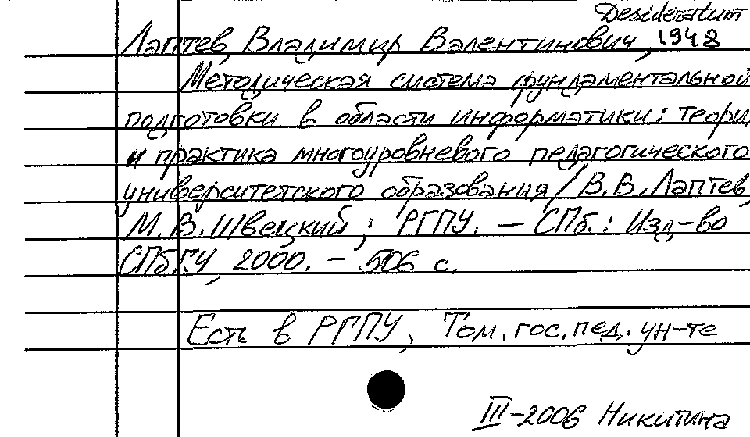 Desideratum
Лаптев, Владимир Валентинович, 1948
Методическая система фундаментальной
подготовки в области информатики: теори
и практика многоуровневого педагогического
университетского образования / В.В. Лаптев,
М.В. Швецкий; РГПУ. – СПб.: Изд-во
СПбГУ, 2000. – 506 с.
Есть в РГПУ, Том. гос. пед. ун-те
III-2006 Никитина